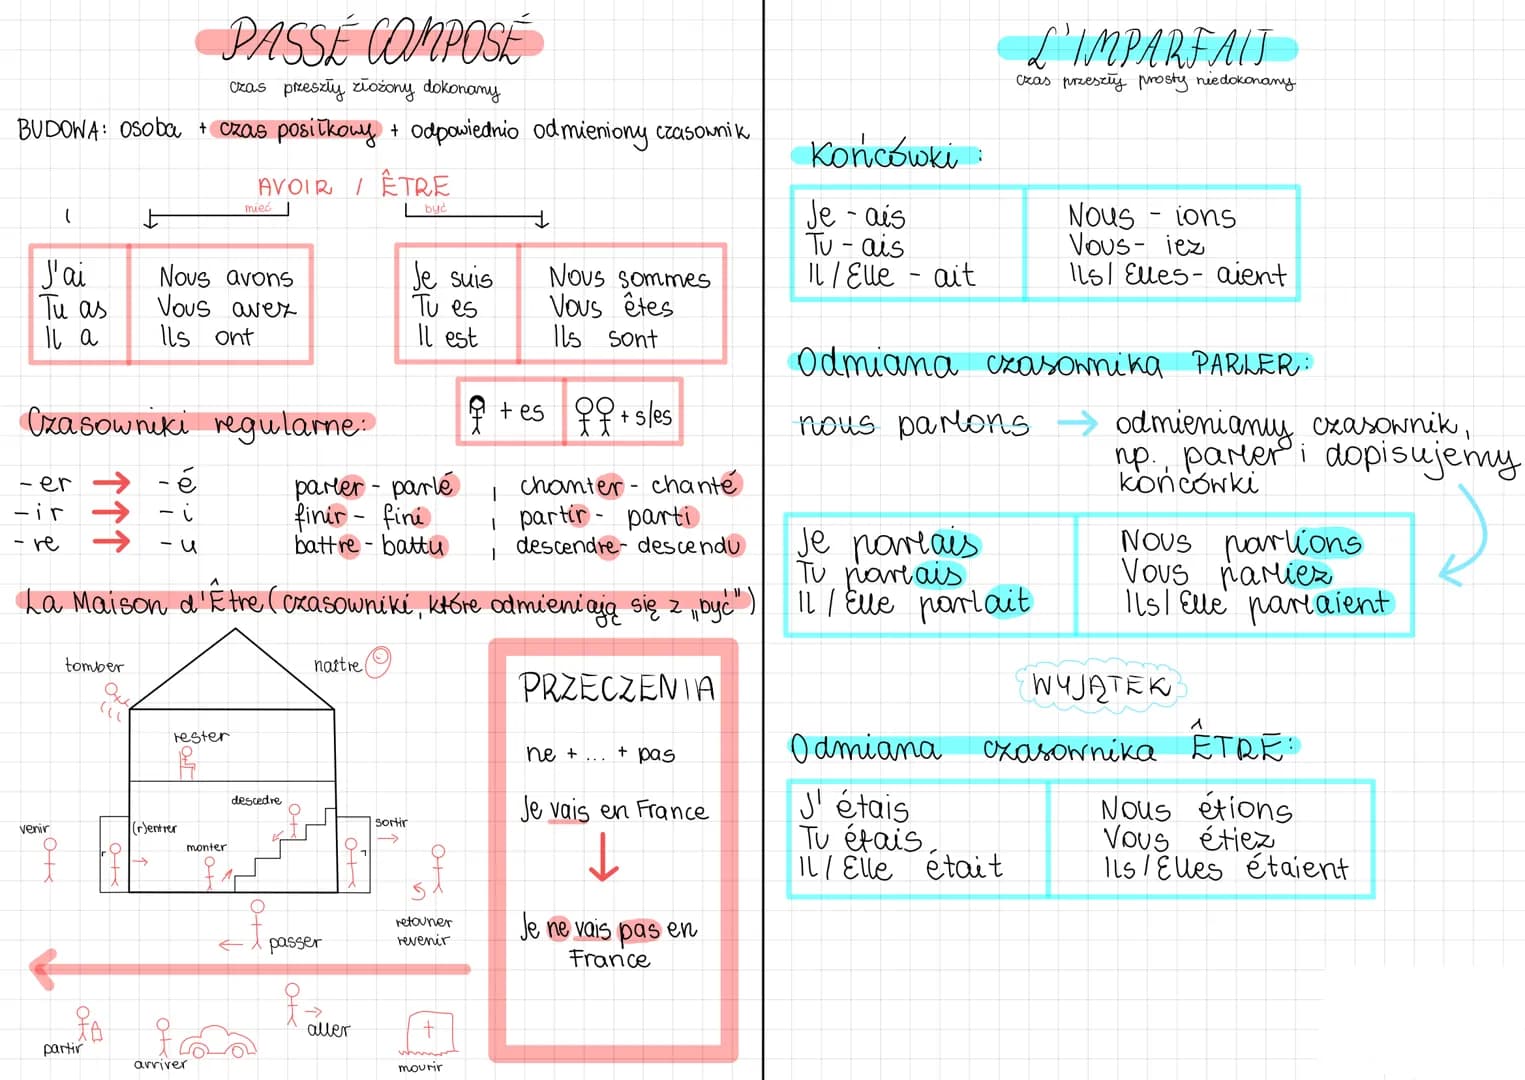 PASSÉ COMPOSÉ
czas przeszły złożony dokonany
BUDOWA: osoba + czas posiłkowy + odpowiednio odmieniony czasownik
AVOIR / ÊTRE
mieć
być
J'ai
Tu as
Il a
Nous avons
Vous avez
Ils ont
Je suis
Tu es
Il est
Nous sommes
Vous êtes
Ils sont
+ es
+ s/es
Czasowniki regularne:
-er → -é
-ir → -i
-re → -u
parler - parlé
finir - fini
battre - battu
chanter - chanté
partir - parti
descendre - descendu
La Maison d'Être (czasowniki, które odmieniają się z „być")
tomber
naître
rester
descedre
venir
(r)entrer
monter
sortir
retouner
revenir
passer
aller
partir
arriver
mourir
PRZECZENIA
ne + ... + pas
Je vais en France
Je ne vais pas en
France
L'IMPARFAIT
czas przeszły prosty niedokonany
Końcówki:
Je - ais
Tu - ais
Il / Elle - ait
Nous - ions
Vous - iez
Ils / Elles - aient
Odmiana czasownika PARLER:
nous parlons → odmieniamy czasownik,
np. parler i dopisujemy
końcówki
Je parlais
Tu parlais
Il / Elle parlait
Nous parlions
Vous parliez
Ils / Elle parlaient
WYJĄTEK
Odmiana czasownika ÊTRE:
J' étais
Tu étais
Il / Elle était
Nous étions
Vous étiez
Ils / Elles étaient